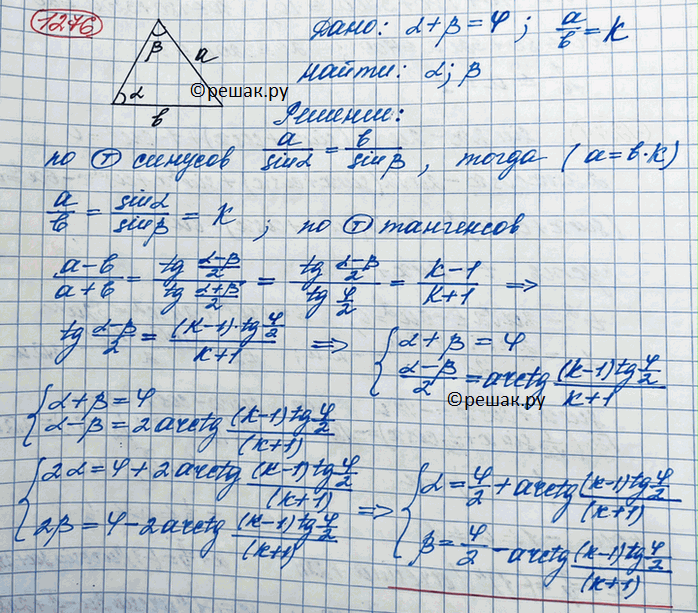 1276
Дано: α+β=φ; a/b=K
β a
α
b
©решак.ру
найти: α; β
Решение:
по Ⓣ синусов a/sinα = b/sinβ, тогда (a=b·K)
a/b = sinα/sinβ = K; по Ⓣ тангенсов
a-b/a+b = tg α-β/2 / tg α+β/2 = tg α-β/2 / tg φ/2 = K-1/K+1 ⇒
tg α-β/2 = (K-1)·tg φ/2 / K+1 ⇒ { α+β=φ
α-β/2 = arctg (K-1)tg φ/2 / K+1
©решак.ру
{ α+β=φ
α-β=2arctg (K-1)tg φ/2 / (K+1)
{ 2α=φ+2arctg (K-1)tg φ/2 / (K+1)
2β=φ-2arctg (K-1)tg φ/2 / (K+1)
⇒ { α=φ/2+arctg (K-1)tg φ/2 / (K+1)
β=φ/2-arctg (K-1)tg φ/2 / (K+1)